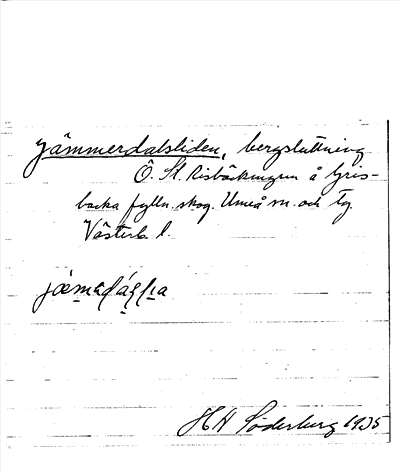 Jämmerdalsliden, bergsluttning
Ö. St. Risbäckmyren å Gris-
backa fylln. skog. Umeå sn. och tg.
Västerb. l.
HH Söderberg 1935